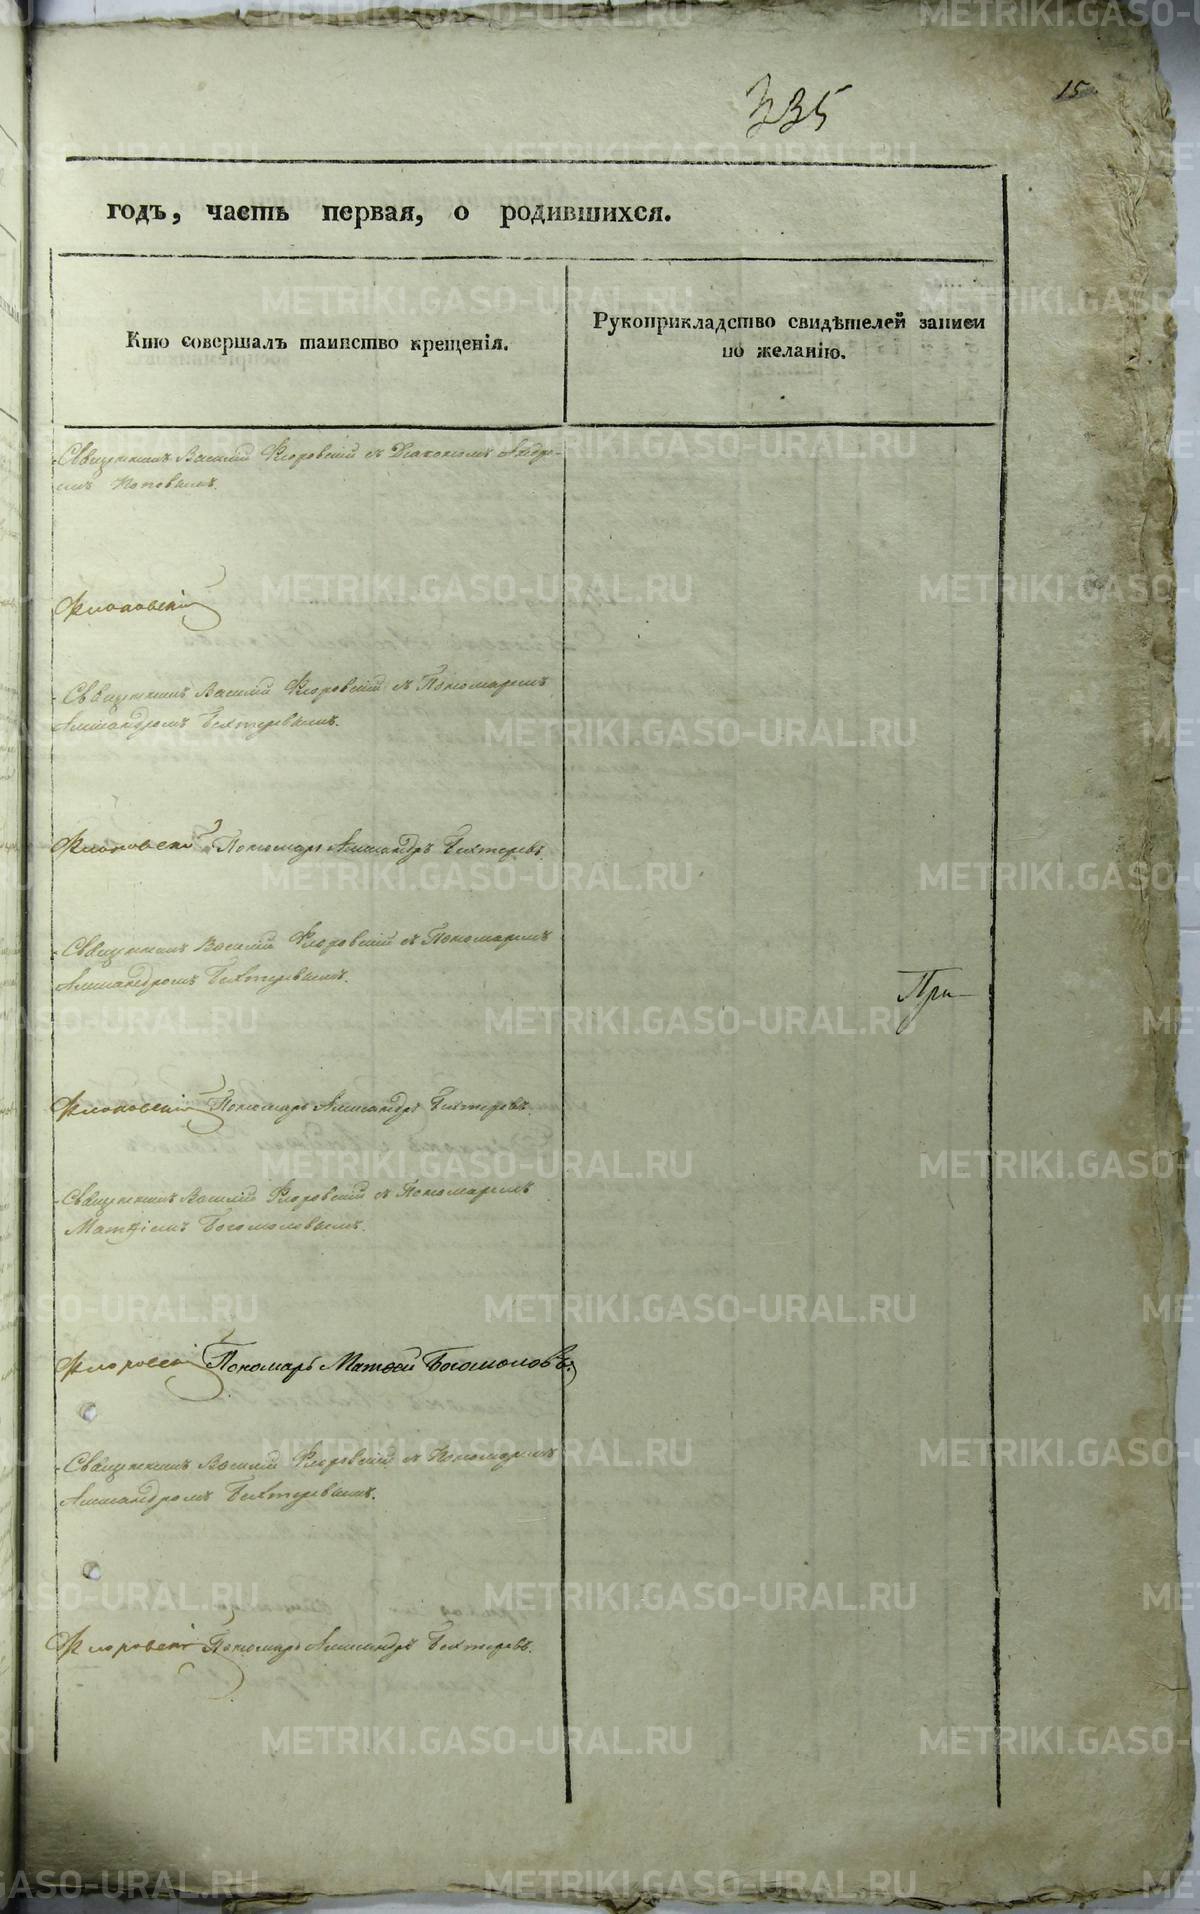 335
15
годъ, часть первая, о родившихся.
Кто совершалъ таинство крещенія.
Рукоприкладство свидѣтелей записи
по желанію.
Священникъ Василій Флоровскій съ Діакономъ Андре-
емъ Поповымъ.
Флоровскій
Священникъ Василій Флоровскій съ Пономаремъ
Александромъ Бехтеревымъ.
Флоровскій Пономарь Александръ Бехтеревъ
Священникъ Василій Флоровскій съ Пономаремъ
Александромъ Бехтеревымъ.
При-
Флоровскій Пономарь Александръ Бехтеревъ.
Священникъ Василій Флоровскій съ Пономаремъ
Матѳіемъ Богомоловымъ.
Флоровскій Пономарь Матѳей Богомоловъ.
Священникъ Василій Флоровскій съ Пономаремъ
Александромъ Бехтеревымъ.
Флоровскій Пономарь Александръ Бехтеревъ.
METRIKI.GASO-URAL.RU